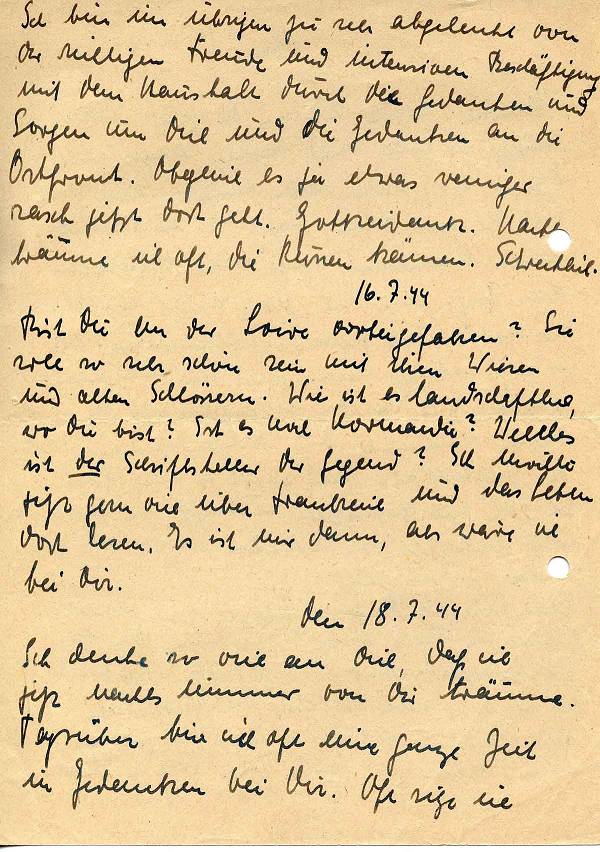 Ich bin im übrigen zu sehr abgelenkt von
der richtigen Freude und intensiven Beschäftigung
mit dem Haushalt durch die Gedanken und
Sorgen um Dich und die Gedanken an die
Ostfront. Obgleich es ja etwas weniger
rasch jetzt dort geht. Gottseidank. Nachts
träume ich oft, die Russen kämen. Schrecklich.
16.7.44
Bist Du an der Loire vorbeigefahren? Sie
soll so sehr schön sein mit ihren Wiesen
und alten Schlössern. Wie ist es landschaftlich,
wo Du bist? Ist es noch Normandie? Welches
ist der Schriftsteller der Gegend? Ich möchte
jetzt gern viel über Frankreich und das Leben
dort lesen. Es ist mir dann, als wäre ich
bei Dir.
den 18.7.44
Ich denke so viel an Dich, daß ich
jetzt nachts nimmer von Dir träume.
Tagsüber bin ich oft eine ganze Zeit
in Gedanken bei Dir. Oft sitze ich